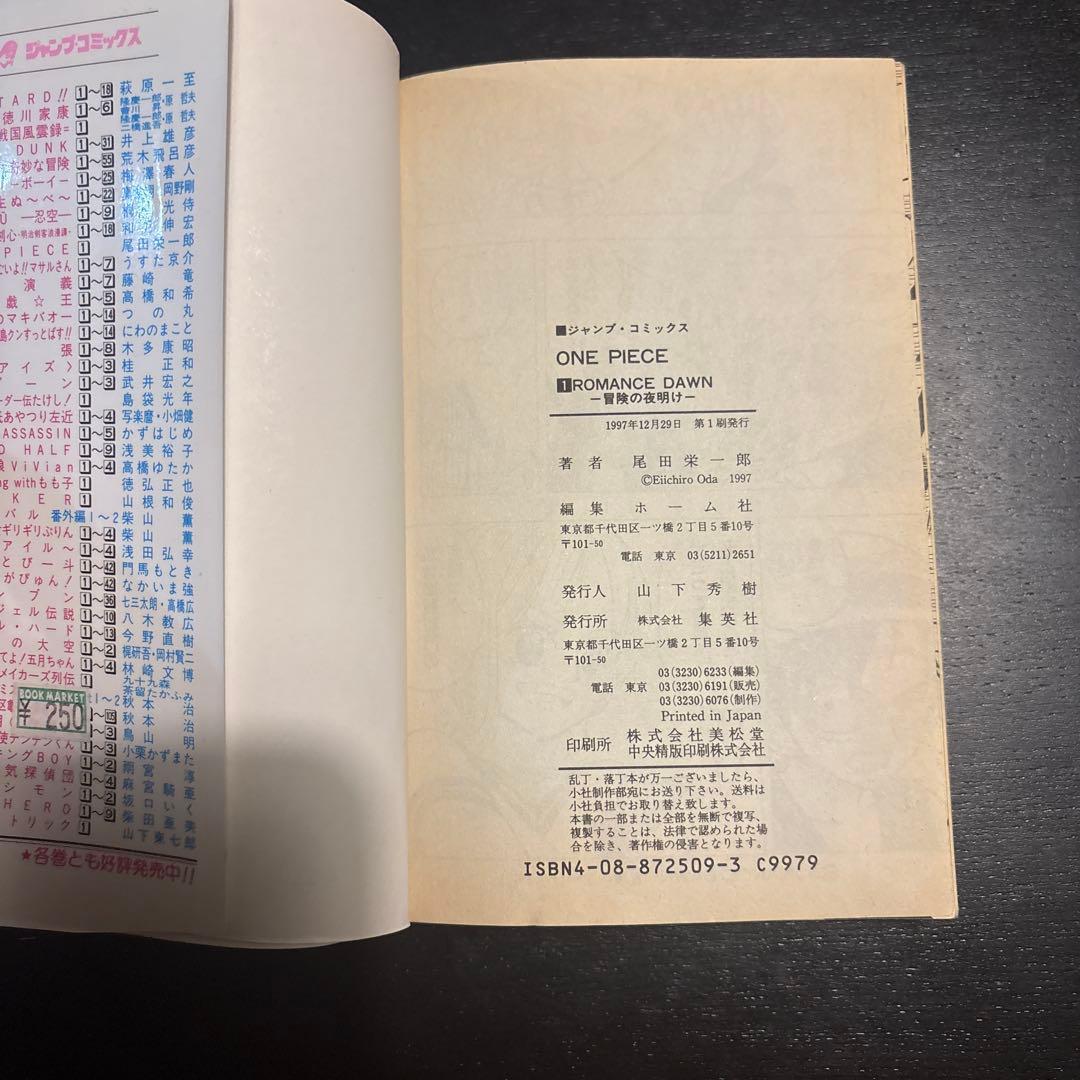 ジャンプ・コミックス
TARD!! 1〜18 萩原一至
徳川家康 1〜6 隆慶一郎・原哲夫
戦国風雲録= 1
DUNK 1〜31 井上雄彦
妙な冒険 1〜55 荒木飛呂彦
ーボーイー 1〜25 梅澤春人
生ぬ〜べ〜 1〜22 岡野剛
Ū ―忍空― 1〜9
剣心・明治剣客浪漫譚・ 1〜18 伸宏
PIECE 1 尾田栄一郎
ごいよ!!マサルさん 1〜7 うすた京介
演義 1〜7 藤崎竜
戯☆王 1〜5 高橋和希
のマキバオー 1〜14 つの丸
島クンすっとばす!! 1〜14 にわのまこと
張 1〜8 木多康昭
アイズ〉 1〜3 桂正和
ーン 1〜3 武井宏之
ーダー伝たけし! 1 島袋光年
あやつり左近 1〜4 写楽麿・小畑健
ASSASSIN 1〜5 かずはじめ
HALF 1〜9 浅美裕子
ViVian 1〜4 高橋ゆたか
ng withもも子 1 徳弘正也
KER 1 山根和俊
バル 番外編1〜2 柴山薫
ギリギリぷりん 1〜4 柴山薫
アイル〜 1〜4 浅田弘幸
とび一斗 1〜42 門馬もとき
がぴゅん! 1〜42 なかいま強
ンプン 1〜36 七三太朗・高橋広
ジェル伝説 1〜10 八木教広
ル・ハード 1〜13 今野直樹
の大空 1〜2 梶研吾・岡村賢二
てよ!五月ちゃん 1〜4 林崎文博
メイカーズ列伝 1 九十九森
茶留たかふみ
1〜2 秋本治
1〜105 秋本治
1〜3 鳥山明
使テンテンくん 1〜3 小栗かずまた
キングBOY 1〜2 雨宮淳
気探偵団 1〜4 麻宮騎亜
シモン 1〜2 坂口いく
HERO 1〜9 柴田亜美
トリック 1 山下東七郎
★各巻とも好評発売中!!
BOOK MARKET
¥ 250
■ジャンプ・コミックス
ONE PIECE
1 ROMANCE DAWN
―冒険の夜明け―
1997年12月29日 第1刷発行
著者 尾田栄一郎
©Eiichiro Oda 1997
編集 ホーム社
東京都千代田区一ツ橋2丁目5番10号
〒101-50
電話 東京 03(5211)2651
発行人 山下秀樹
発行所 株式会社 集英社
東京都千代田区一ツ橋2丁目5番10号
〒101-50
03(3230)6233(編集)
電話 東京 03(3230)6191(販売)
03(3230)6076(制作)
Printed in Japan
印刷所 株式会社美松堂
中央精版印刷株式会社
乱丁・落丁本が万一ございましたら、
小社制作部宛にお送り下さい。送料は
小社負担でお取り替え致します。
本書の一部または全部を無断で複写、
複製することは、法律で認められた場
合を除き、著作権の侵害となります。
ISBN4-08-872509-3 C9979